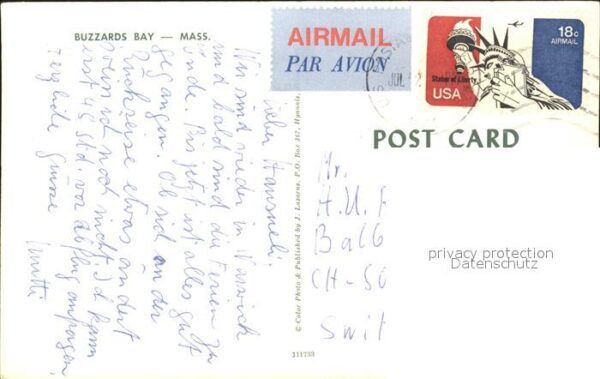 BUZZARDS BAY — MASS.
AIRMAIL
PAR AVION
18c
AIRMAIL
Statue of Liberty
USA
JUL
POST CARD
Lieber Hansueli.
Wir sind wieder in Warwick
und bald sind die Ferien zu
Ende. Bis jetzt ist alles gut
gegangen. Ob sich an der
Rückreise etwas ändert
wissen wir noch nicht. Ich kann
erst 48 Std. vor Abflug anfragen.
Herzliche Grüsse
Mutti
© Color Photo & Published by J. Lazarus, P.O. Box 317, Hyannis,
111733
Mr.
H.U.F
CH-
Swit
privacy protection
Datenschutz